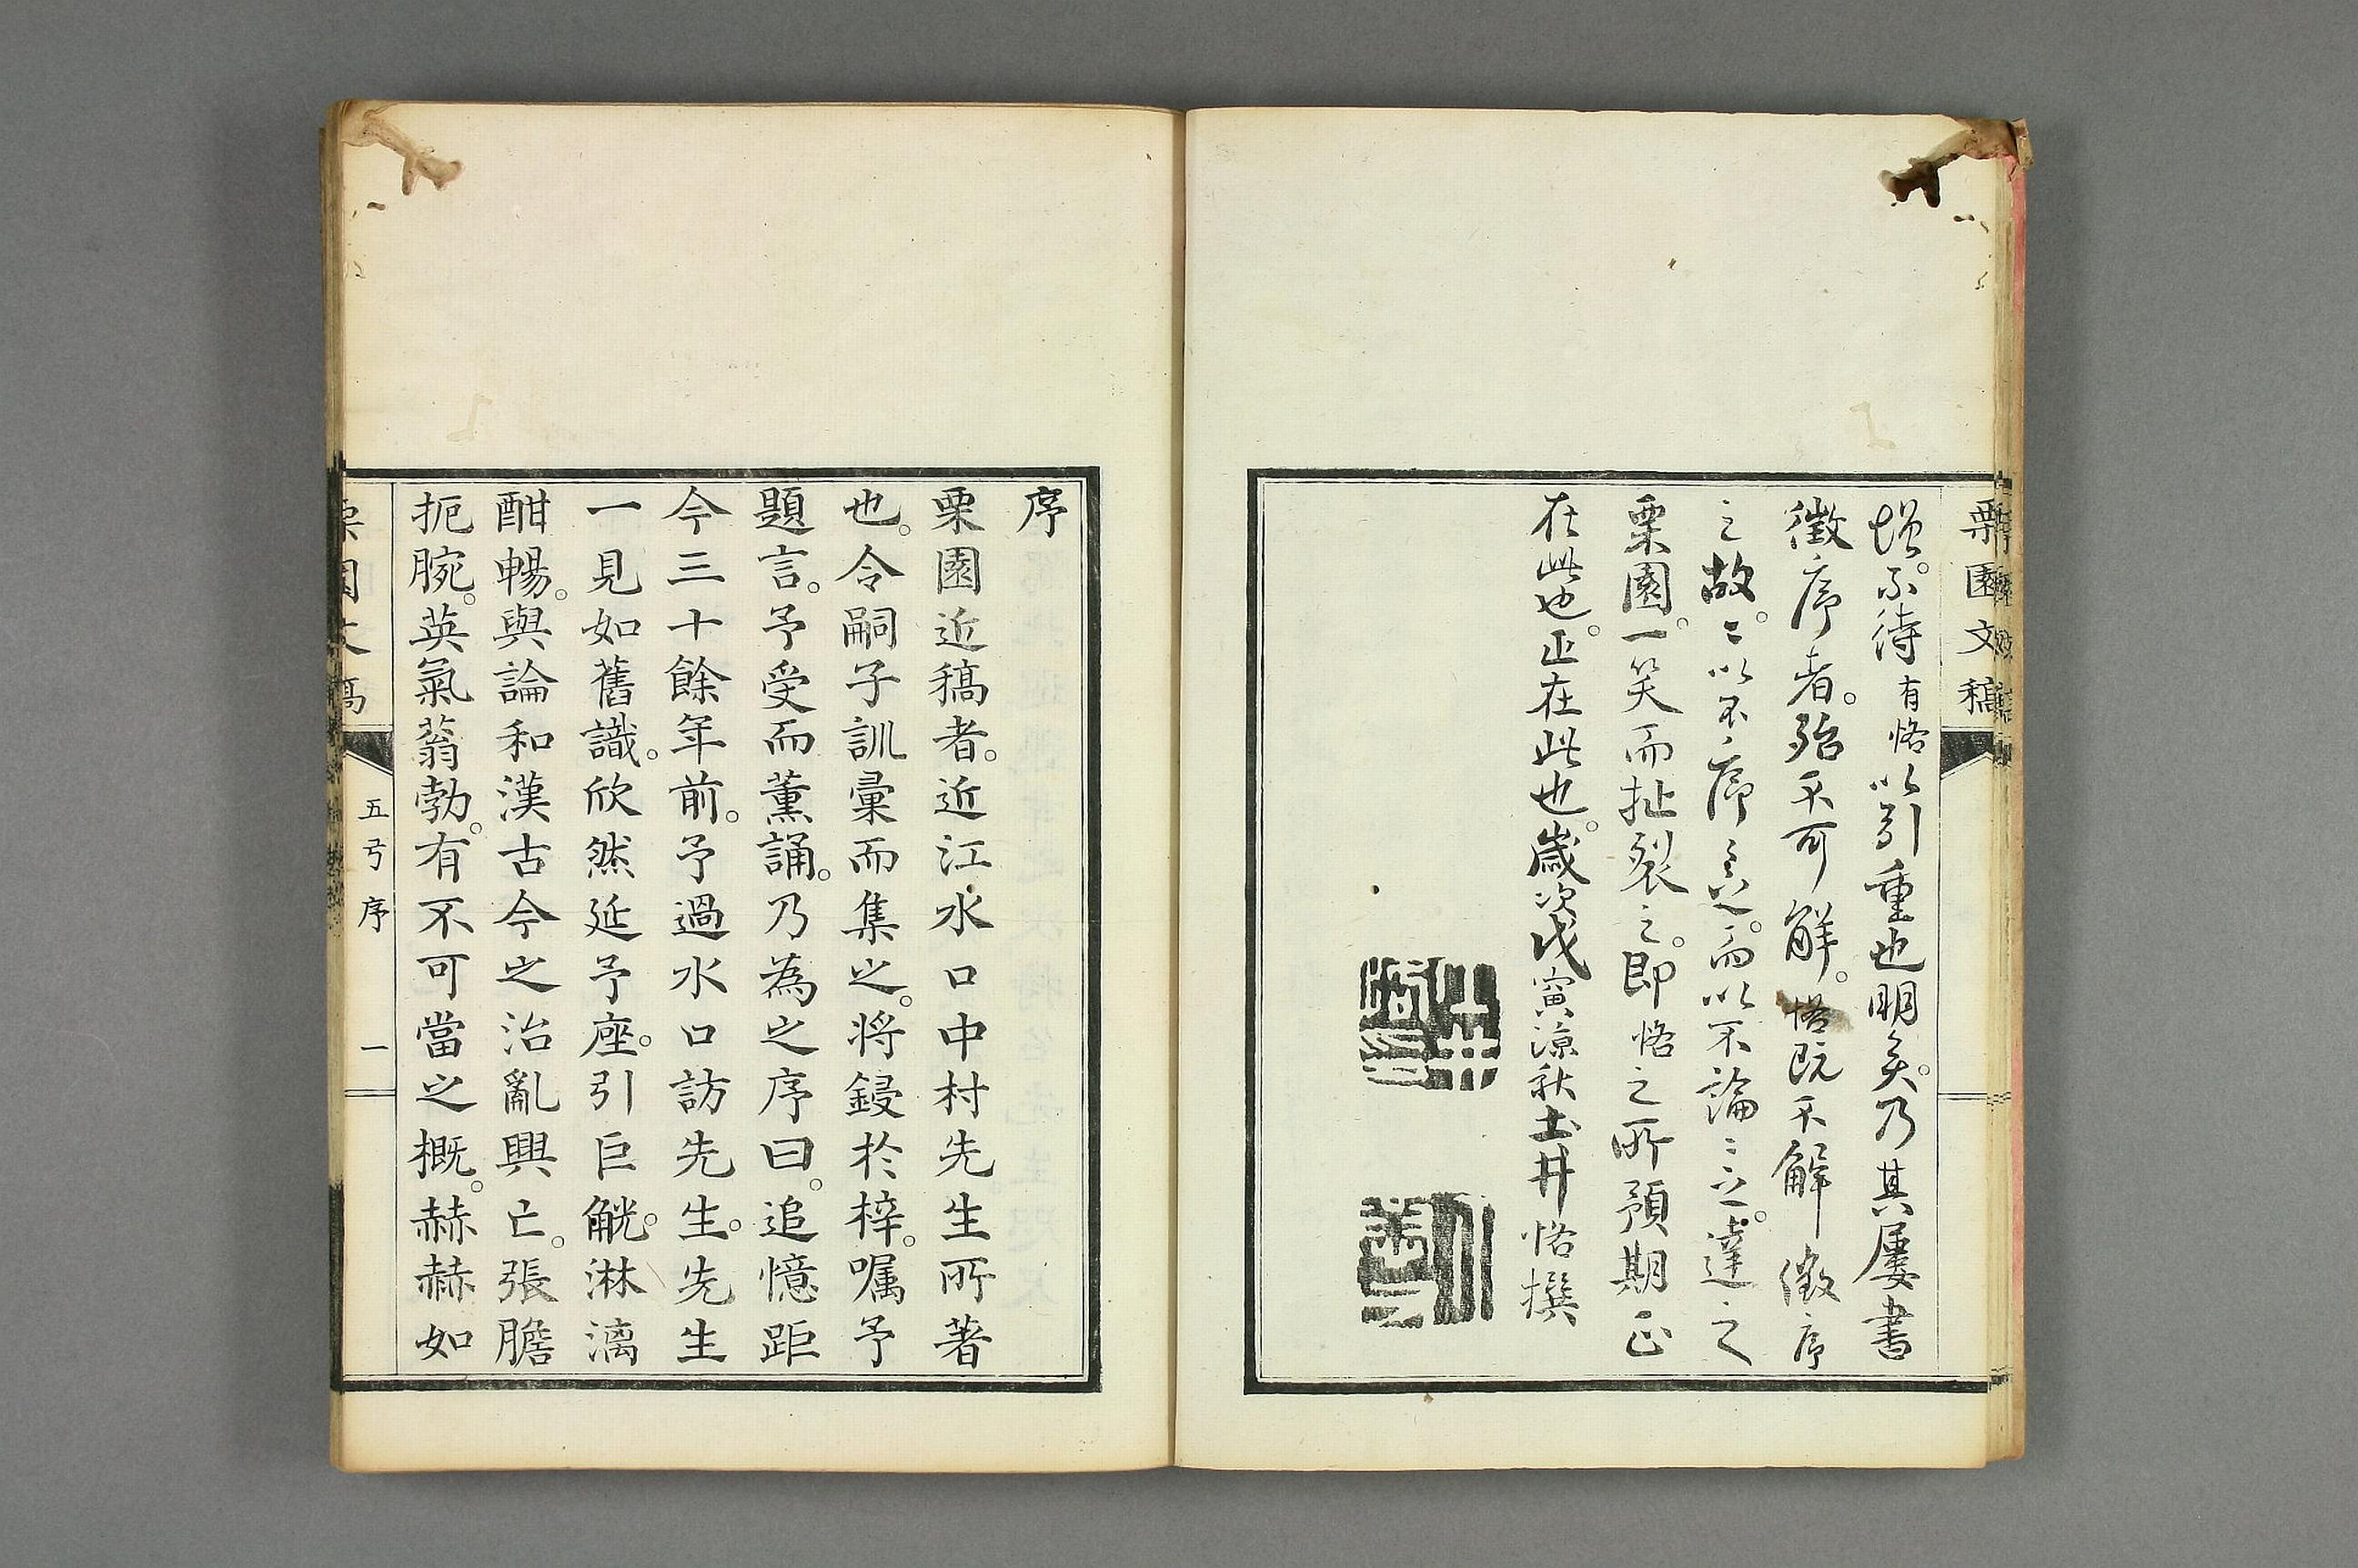 栗園文稿
増。不待有恪以引重也明矣。乃其屢書
徵序者。殆不可解。恪既不解徵序
之故。〻以不序之。而以不論〻之。達之
栗園。一笑而扯裂之。即恪之所預期正
在此也。正在此也。歲次戊寅涼秋土井恪撰
序
栗園近稿者。近江水口中村先生所著
也。令嗣子訓彙而集之。将鋟於梓。嘱予
題言。予受而薫誦。乃為之序曰。追憶距
今三十餘年前。予過水口訪先生。先生
一見如舊識。欣然延予座。引巨觥。淋漓
酣暢。與論和漢古今之治亂興亡。張膽
扼腕。英氣蓊勃。有不可當之概。赫赫如
栗園文稿
五弓序
一